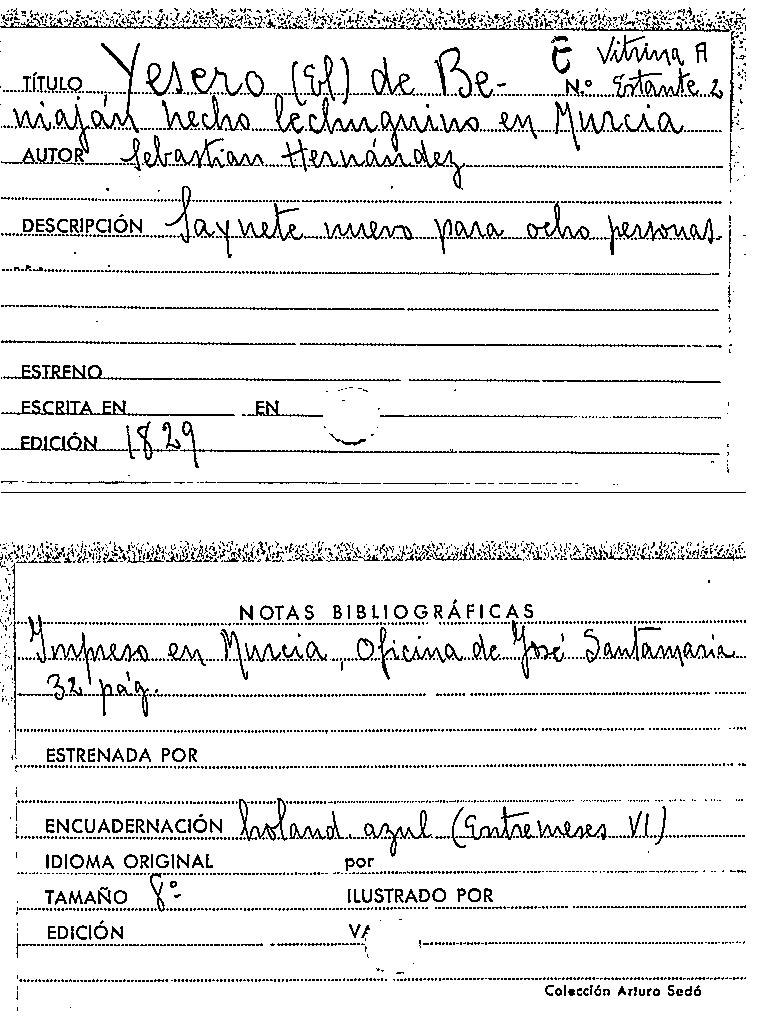 E Vitrina A
TÍTULO Yesero (El) de Be- N.º Estante 2
niaján hecho lechuguino en Murcia
AUTOR Sebastian Hernández
DESCRIPCIÓN Saynete nuevo para ocho personas
ESTRENO
ESCRITA EN EN
EDICIÓN 1829
NOTAS BIBLIOGRÁFICAS
Impreso en Murcia, Oficina de José Santamaria
32 pág.
ESTRENADA POR
ENCUADERNACIÓN holand. azul (Entremeses VI)
IDIOMA ORIGINAL por
TAMAÑO 8º
ILUSTRADO POR
EDICIÓN
Colección Arturo Sedó